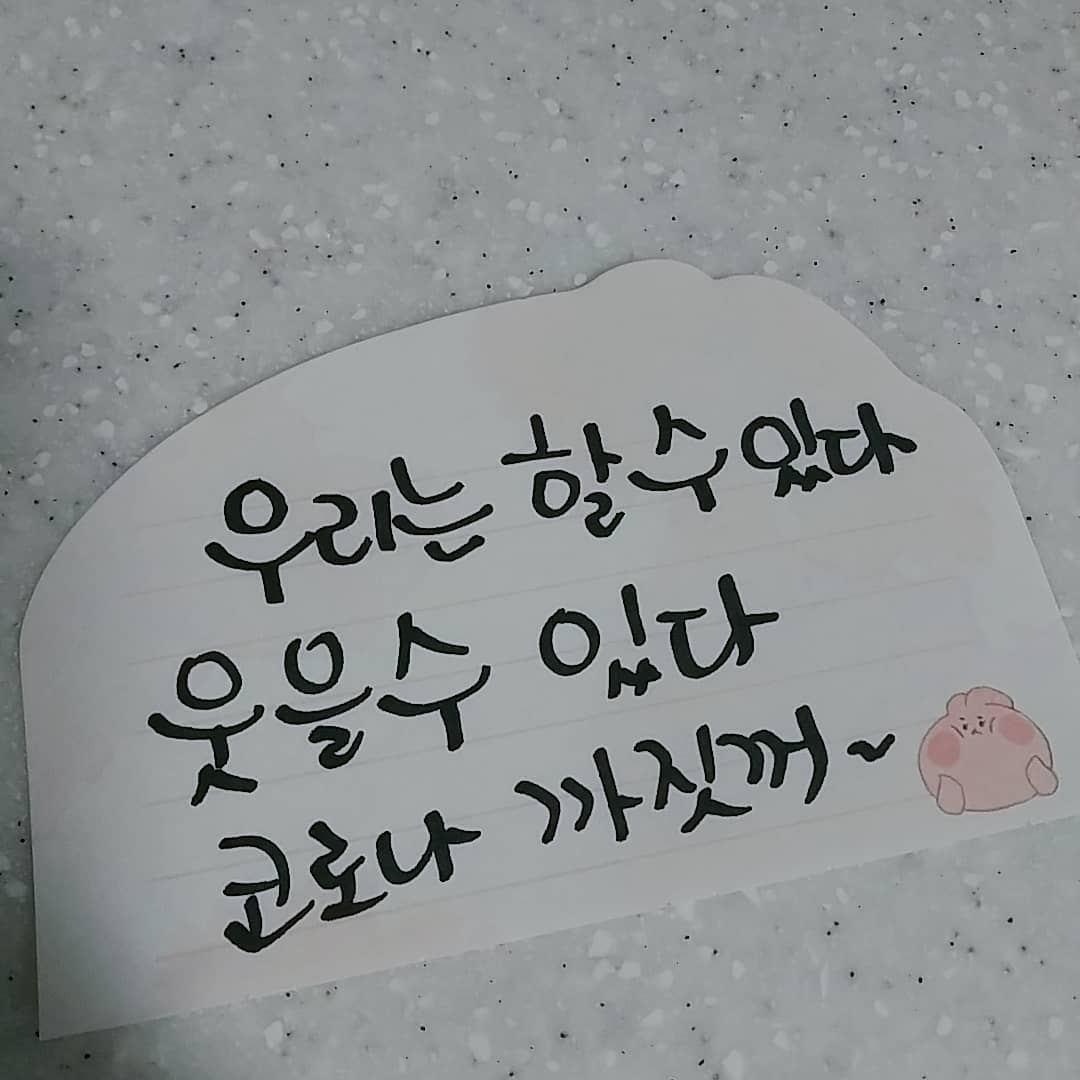 우리는 할수있다
웃을수 있다
코로나 까짓꺼~